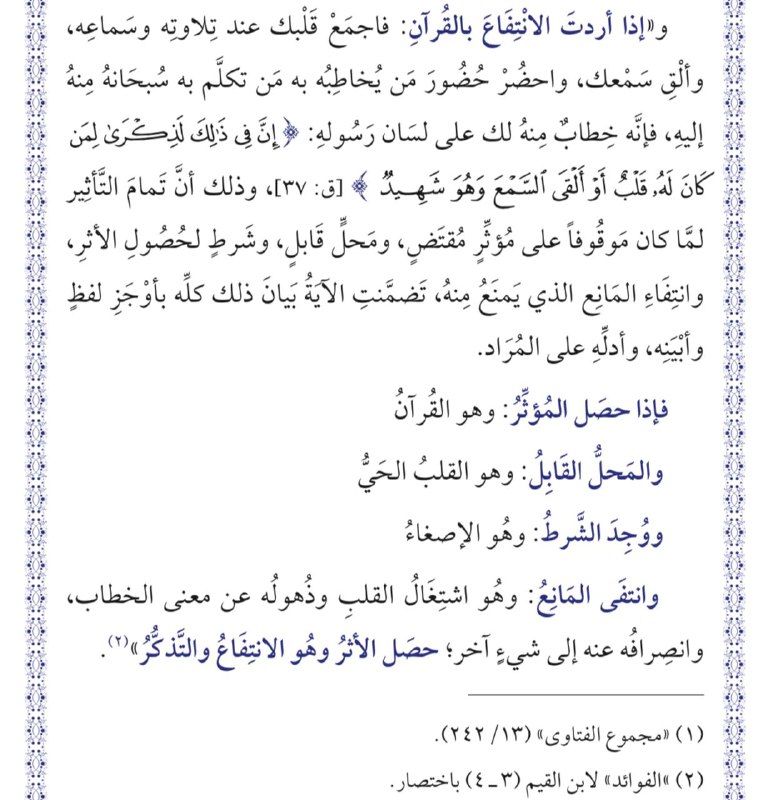 و«إذا أردتَ الانْتِفَاعَ بالقُرآنِ: فاجمَعْ قَلْبك عند تِلاوتِه وسَماعِه،
وألْقِ سَمْعك، واحضُرْ حُضُورَ مَن يُخاطِبُه به مَن تكلَّم به سُبحَانهُ مِنهُ
إليهِ، فإنَّه خِطابٌ مِنهُ لك على لسَان رَسُولهِ: ﴿ إِنَّ فِى ذَٰلِكَ لَذِكْرَىٰ لِمَن
كَانَ لَهُۥ قَلْبٌ أَوْ أَلْقَى ٱلسَّمْعَ وَهُوَ شَهِيدٌ ﴾ [ق: ٣٧]، وذلك أنَّ تَمامَ التَّأثِير
لمَّا كان مَوقُوفاً على مُؤثِّرٍ مُقتَضٍ، ومَحلٍّ قَابلٍ، وشَرطٍ لحُصُولِ الأثرِ،
وانتِفَاءِ المَانِع الذي يَمنَعُ مِنهُ، تَضمَّنتِ الآيَةُ بيَانَ ذلك كلِّه بأوْجَزِ لفظٍ
وأبْيَنِه، وأدلِّهِ على المُرَاد.
فإذا حصَل المُؤثِّرُ: وهو القُرآنُ
والمَحلُّ القَابِلُ: وهو القلبُ الحَيُّ
ووُجِدَ الشَّرطُ: وهُو الإصغاءُ
وانتفَى المَانِعُ: وهُو اشتِغَالُ القلبِ وذُهولُه عن معنى الخطاب،
وانصِرافُه عنه إلى شيءٍ آخر؛ حصَل الأثرُ وهُو الانتِفَاعُ والتَّذكُّرُ»(٢).
(١) «مجموع الفتاوى» (١٣/ ٢٤٢).
(٢) »الفوائد» لابن القيم (٣ ـ ٤) باختصار.